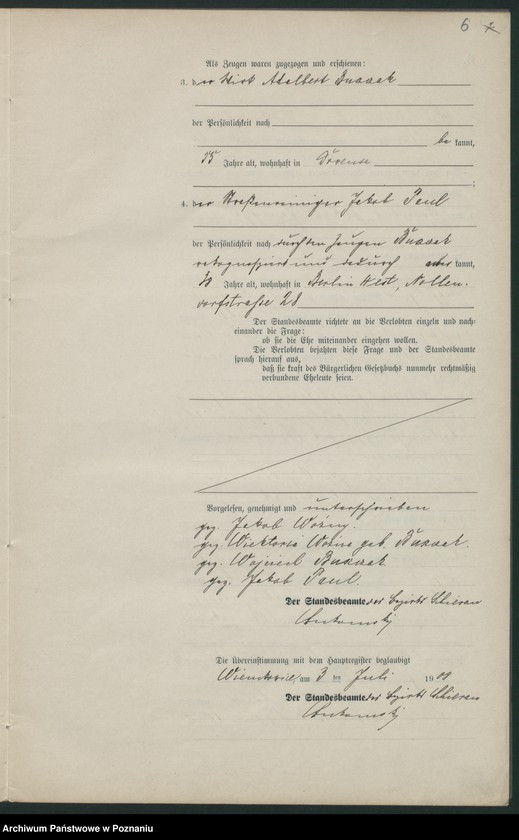 6
Als Zeugen waren zugezogen und erschienen:
3. der Wirt Adalbert
der Persönlichkeit nach
be kannt,
55 Jahre alt, wohnhaft in
;
4. der Straßenreiniger Jakob Paul
der Persönlichkeit nach durch den Zeugen
rekognosziert und dadurch kannt,
Jahre alt, wohnhaft in Berlin West, Nollen-
dorfstraße 28
Der Standesbeamte richtete an die Verlobten einzeln und nach-
einander die Frage:
ob sie die Ehe miteinander eingehen wollen.
Die Verlobten bejahten diese Frage und der Standesbeamte
sprach hierauf aus,
daß sie kraft des Bürgerlichen Gesetzbuchs nunmehr rechtmäßig
verbundene Eheleute seien.
Vorgelesen, genehmigt und unterschrieben
gez. Jakob Woźny.
gez. Wiktoria Woźna geb.
gez. Wojciech
gez. Jakob Paul.
Der Standesbeamte des Bezirks
Die Übereinstimmung mit dem Hauptregister beglaubigt
am 3 ten Juli 1909
Der Standesbeamte des Bezirks
Archiwum Państwowe w Poznaniu